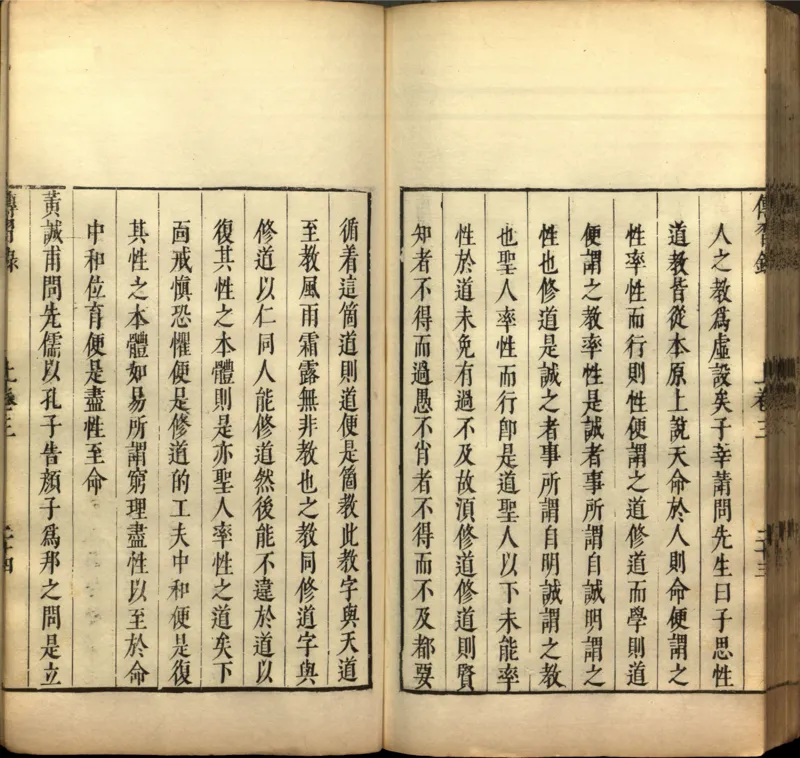 傳習錄 上卷三 二十三
人之教爲虛設矣子莘請問先生曰子思性
道教皆從本原上說天命於人則命便謂之
性率性而行則性便謂之道修道而學則道
便謂之教率性是誠者事所謂自誠明謂之
性也修道是誠之者事所謂自明誠謂之教
也聖人率性而行卽是道聖人以下未能率
性於道未免有過不及故須修道修道則賢
知者不得而過愚不肖者不得而不及都要
循着這箇道則道便是箇教此教字與天道
至教風雨霜露無非教也之教同修道字與
修道以仁同人能修道然後能不違於道以
復其性之本體則是亦聖人率性之道矣下
面戒慎恐懼便是修道的工夫中和便是復
其性之本體如易所謂窮理盡性以至於命
中和位育便是盡性至命
黃誠甫問先儒以孔子告顏子爲邦之問是立
傳習錄 上卷三 二十四